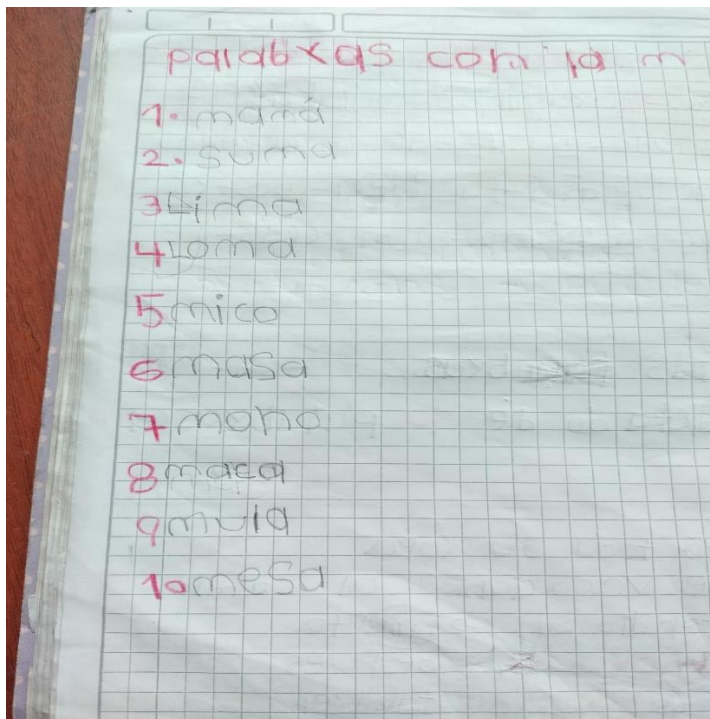 palabras con la m
1. mamá
2. suma
3 Lima
4 Loma
5 mico
6 masa
7 mono
8 maca
9 mula
10 mesa